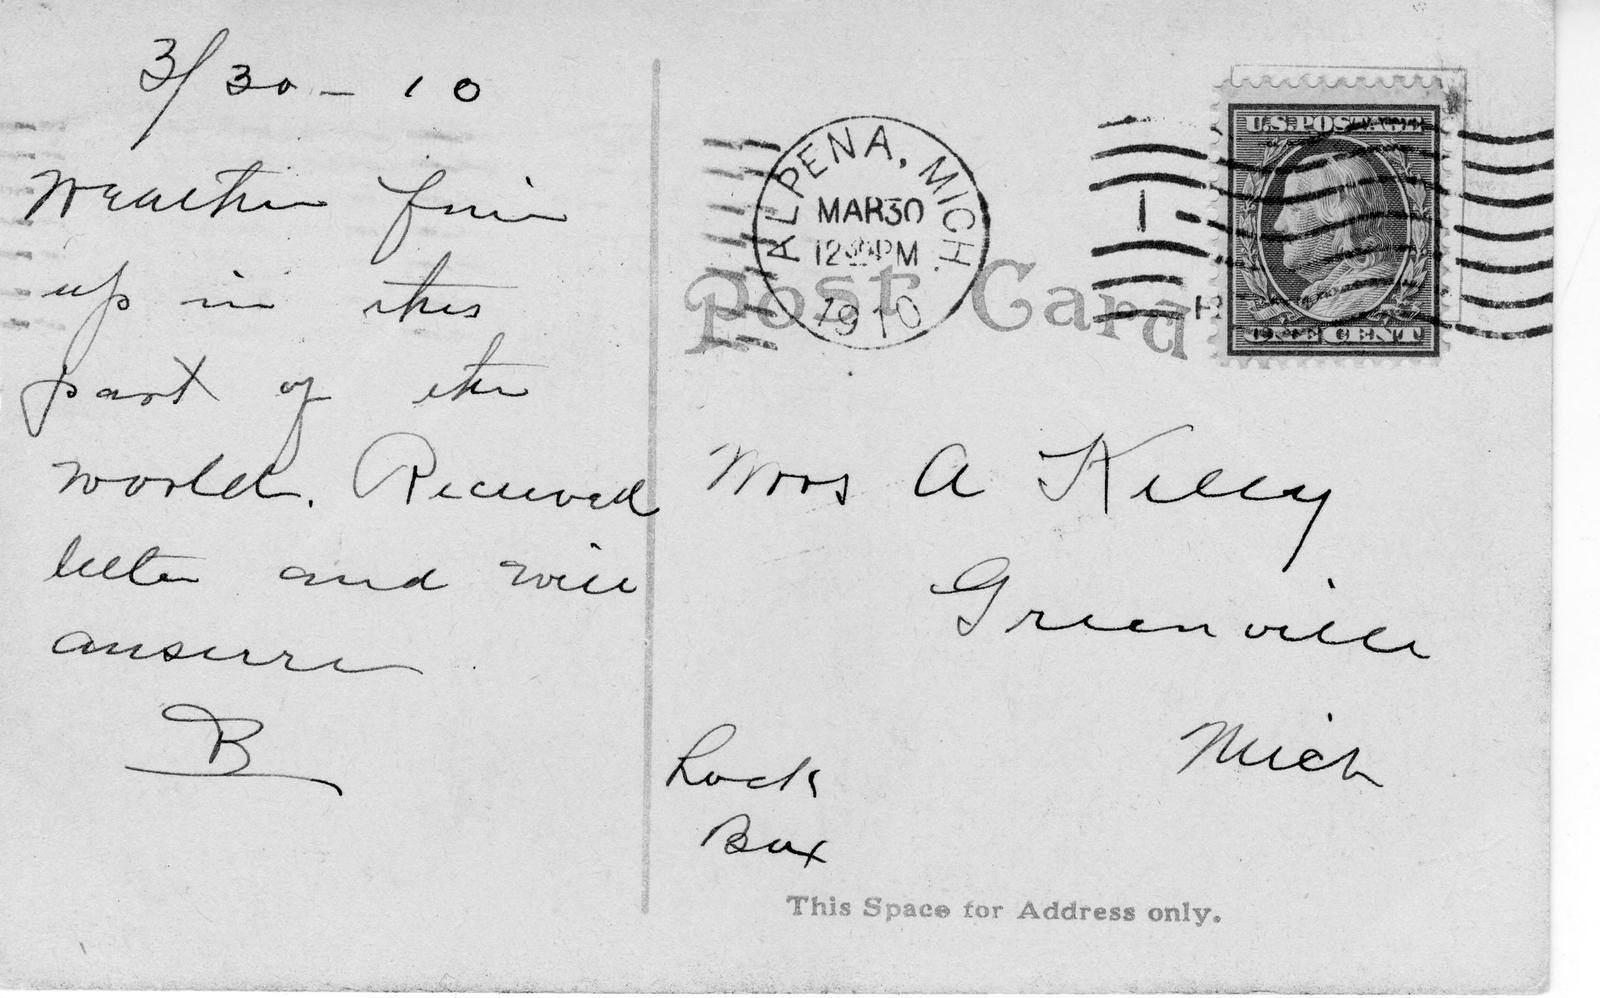 3/30-10
Weather fine
up in this
part of the
world. Received
letter and will
answer
B
ALPENA, MICH.
MAR 30
12 PM
1910
1
U.S. POSTAGE
ONE CENT
Post Card
Mrs A Kelly
Greenville
Mich
Lock
Box
This Space for Address only.